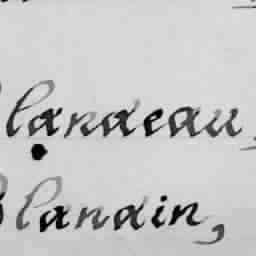 Blandeau,
Blandin,